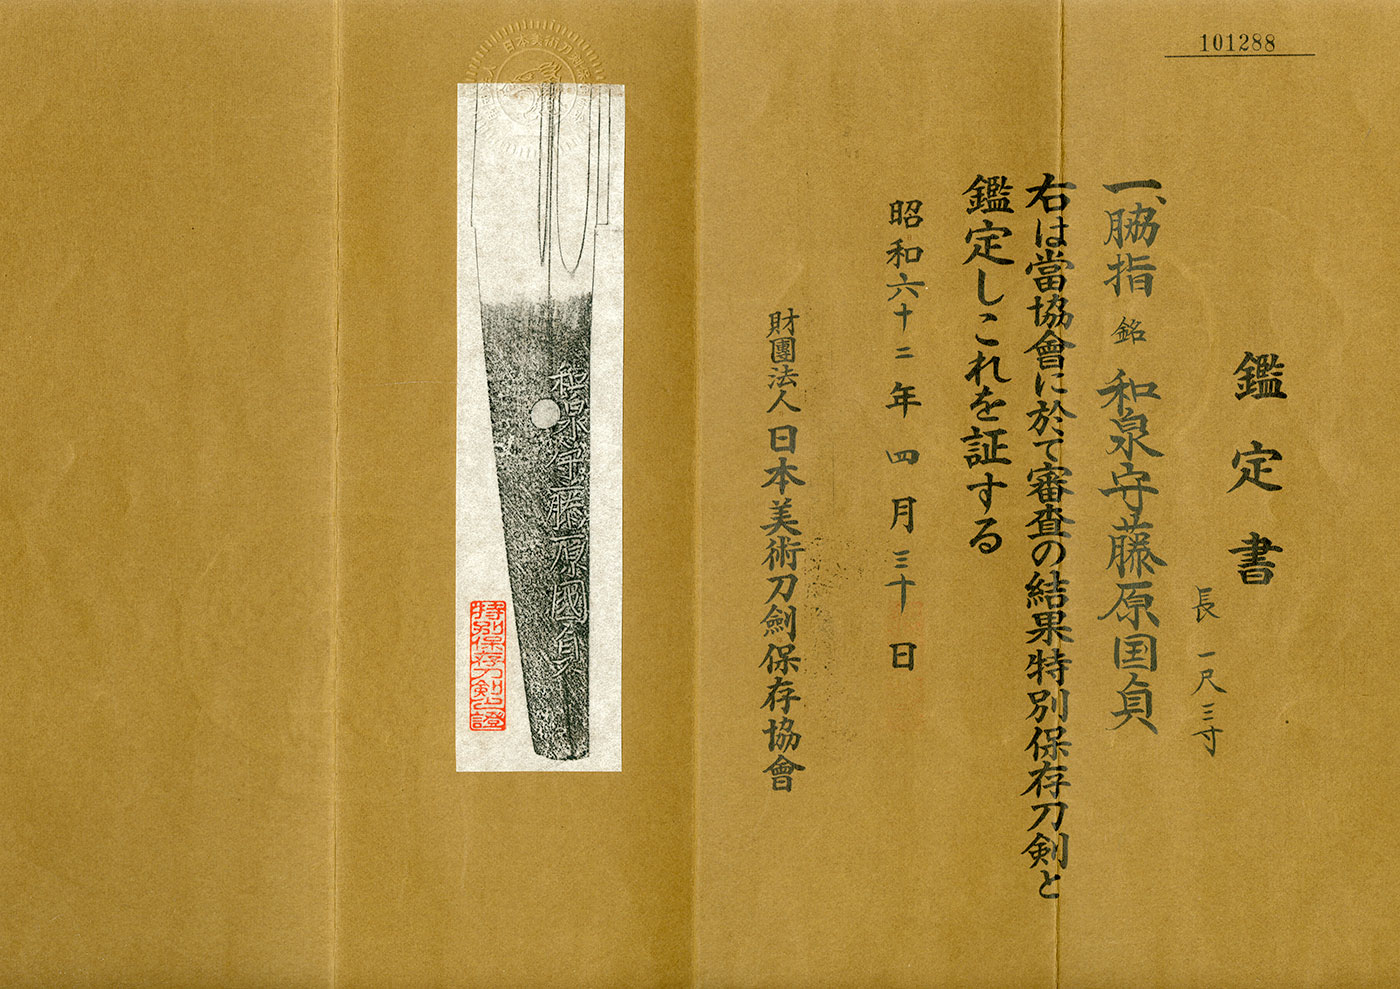 101288
鑑定書
長 一尺三寸
一、脇指 銘 和泉守藤原国貞
右は當協會に於て審査の結果特別保存刀剣と
鑑定しこれを証する
昭和六十二年四月三十日
財團法人日本美術刀劍保存協會
日本美術刀
和泉守藤原國貞
特別保存刀剣之證